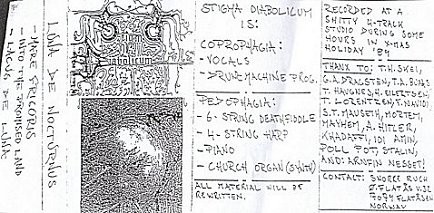 LUNA DE NOCTURNUS
- MARE FRIGORIS
- INTO THE PROMISED LAND
- LACUS DE LUNA
STIGMA DIABOLICUM
IS:
COPROPHAGIA:
- VOCALS
- DRUM-MACHINE PROG.
PEDOPHAGIA:
- 6-STRING DEATHFIDDLE
- 4-STRING HARP
- PIANO
- CHURCH ORGAN (SYNTH)
ALL MATERIAL WILL BE
REWRITTEN.
RECORDED AT A
SHITTY 4-TRACK
STUDIO DURING SOME
HOURS IN X-MAS
HOLIDAY '89
THANK TO: T.H. SKEI,
G.A. DRAGSTEN, T.A.
T. HAUGNES, H. EILERTSEN,
T. LORENTZEN, T. NAVIDI
S.T. MAUSETH, MORTEM,
MAYHEM, A. HITLER,
KHADAFFI, IDI AMIN,
POLL POT, STALIN,
AND: ARNFIN NESSET!
CONTACT: SNORRE RUCH
FLATÅS
7079 FLATÅSEN
NORWAY